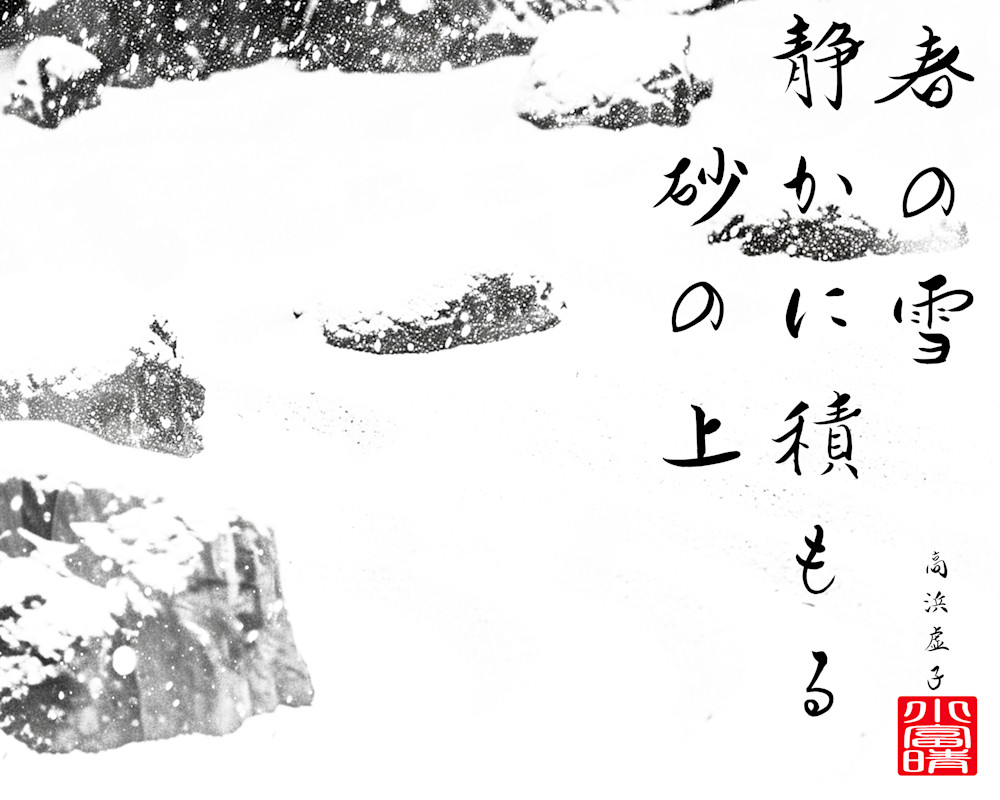 春の雪
静かに積もる
砂の上
高浜虚子
小富晴